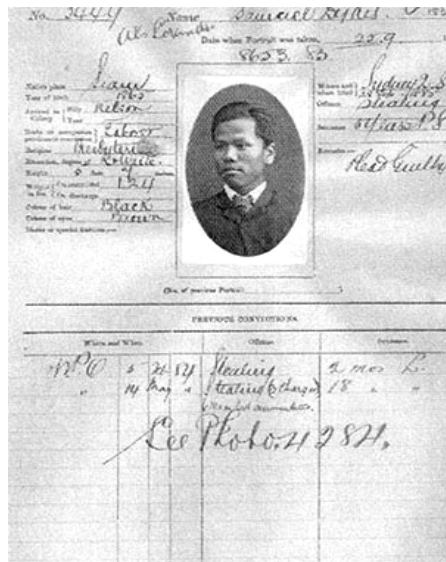 No. 3444 Name Samuel Dykes
Als
Date when Portrait was taken, 22.9
8623. 83
Native place Siam
Year of birth 1862
Arrived in Colony Ship Nelson
Year
Trade or occupation previous to conviction Labor
Religion Presbyterian
Education, degree of R & Write
Height 5 feet 4 inches
Weight in lbs. On committal 124
On discharge
Colour of hair Black
Colour of eyes Brown
Marks or special features:—
Where and when tried Sydney Q.S.
Offence Stealing
Sentence 5 Years P.S.
Remarks:—
Plead Guilty
(No. of previous Portrait )
PREVIOUS CONVICTIONS.
Where and When. Offence. Sentence.
W.P.O 5 84 Stealing 2 mos L.
" 14 May " Stealing (3 charges) 18 " "
See Photo. 4284.